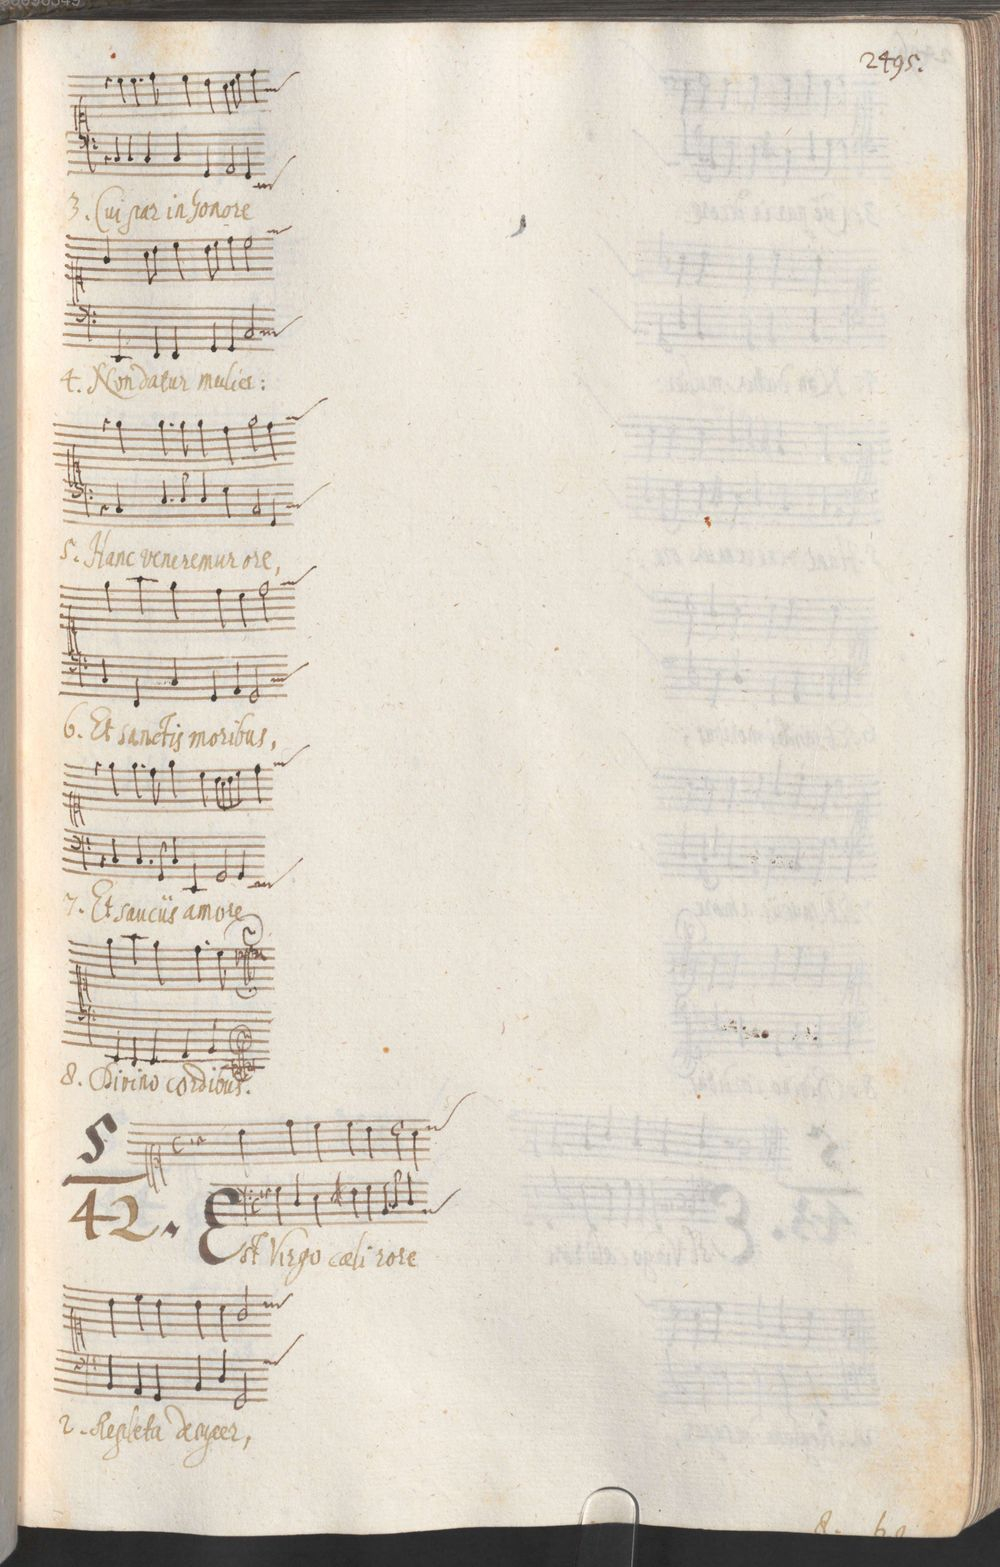 2495.
3. Cui par in honore
4. Non datur mulier:
5. Hanc veneremur ore,
6. Et sanctis moribus,
7. Et sauciis amore
8. Divino cordibus.
5
42.
Est Virgo cæli rore
2. Repleta desuper,